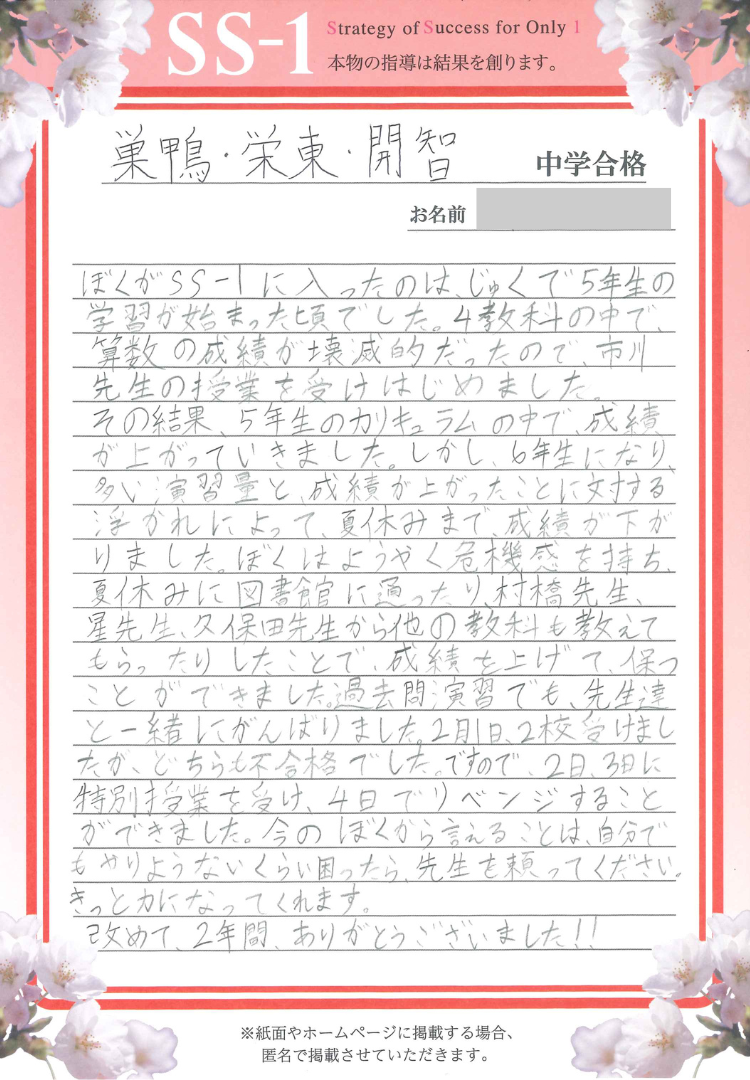 SS-1
Strategy of Success for Only 1
本物の指導は結果を創ります。
巣鴨・栄東・開智 中学合格
お名前
ぼくがSS-1に入ったのは、じゅくで5年生の
学習が始まった頃でした。4教科の中で、
算数の成績が壊滅的だったので、市川
先生の授業を受けはじめました。
その結果、5年生のカリキュラムの中で、成績
が上がっていきました。しかし、6年生になり、
多い演習量と、成績が上がったことに対する
浮かれによって、夏休みまで、成績が下が
りました。ぼくはようやく危機感を持ち、
夏休みに図書館に通ったり、村橋先生、
星先生、久保田先生から他の教科も教えて
もらったりしたことで、成績を上げて、保つ
ことができました。過去問演習でも、先生達
と一緒にがんばりました。2月1日、2校受けまし
たが、どちらも不合格でした。ですので、2日、3日に
特別授業を受け、4日でリベンジすること
ができました。今のぼくから言えることは、自分で
もやりようないくらい困ったら、先生を頼ってください。
きっと力になってくれます。
改めて、2年間、ありがとうございました!!
※紙面やホームページに掲載する場合、
匿名で掲載させていただきます。